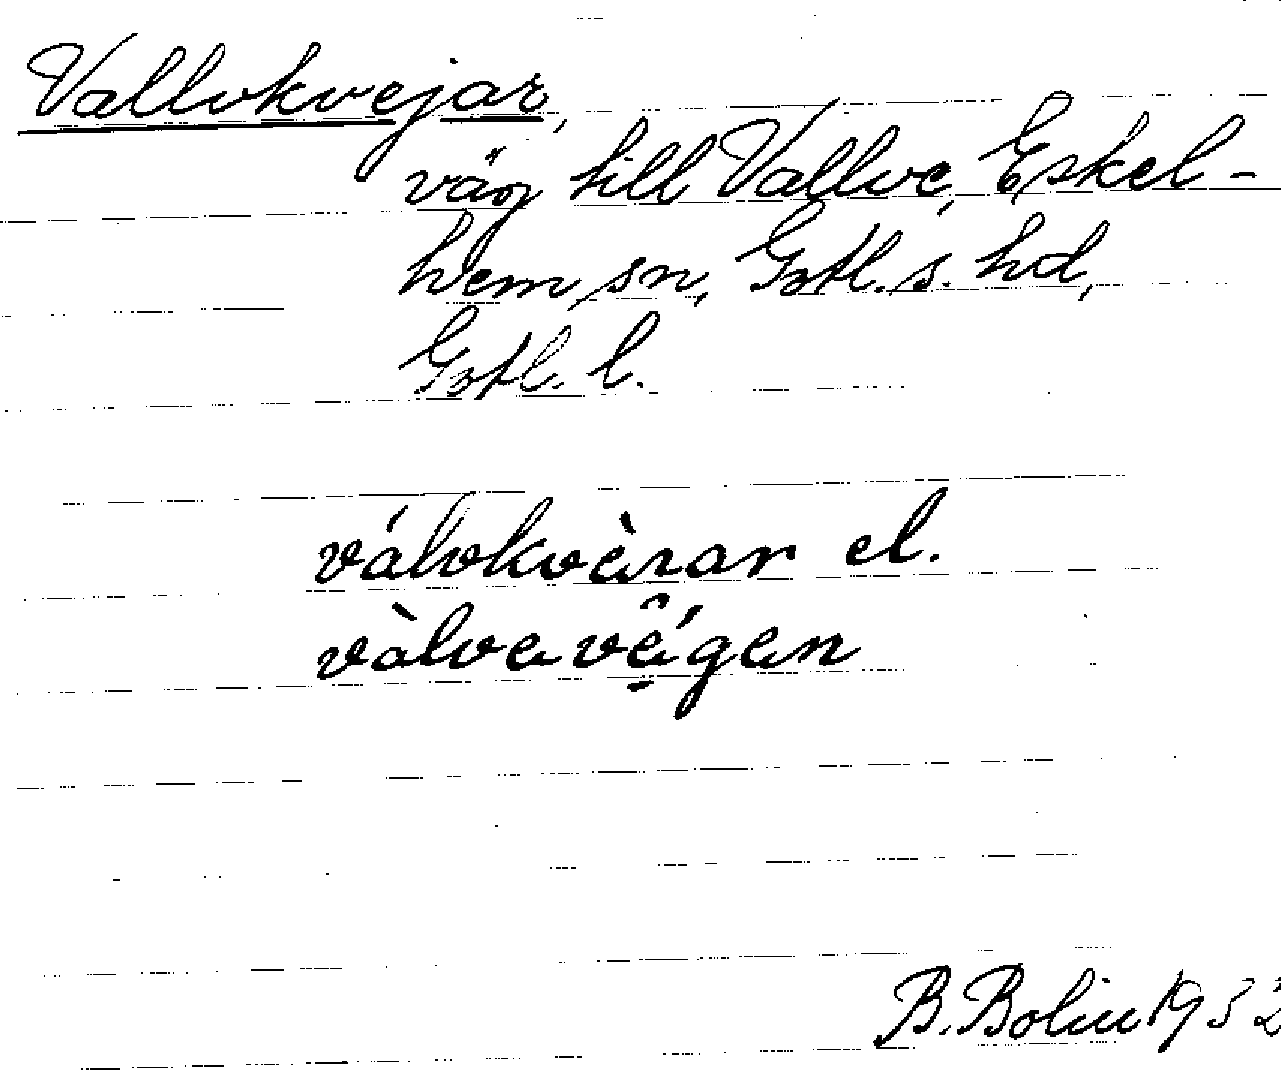 Vallvkvejar,
väg till Vallve, Eskel-
hem sn, Gotl. s. hd,
Gotl. l.
válvkvàrar el.
vàlvavä́gan
B. Bolin 1932